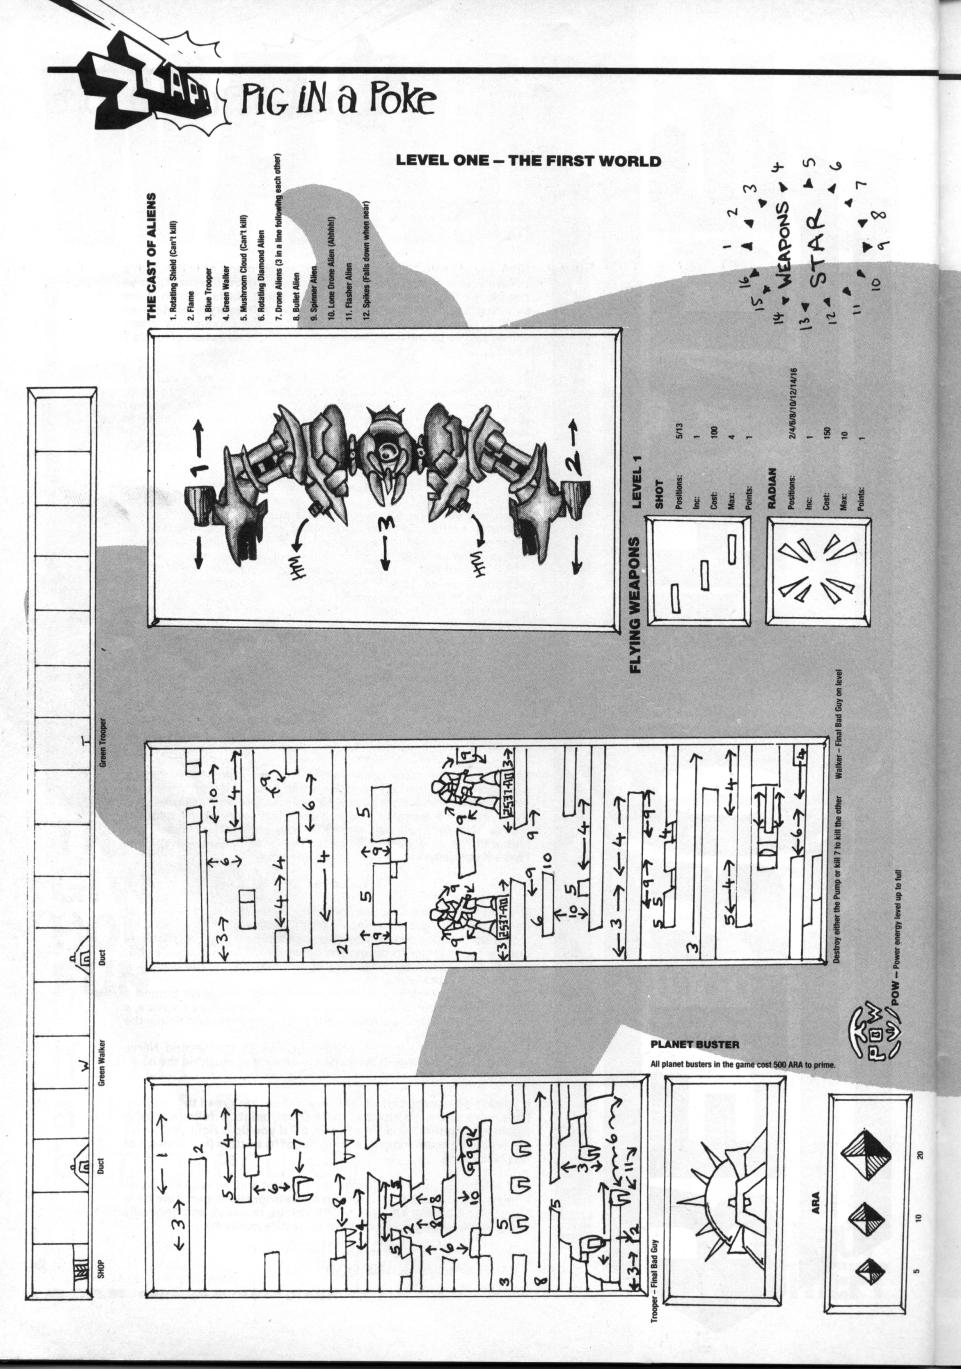 ZZAP!
PIG IN a POKE
LEVEL ONE – THE FIRST WORLD
THE CAST OF ALIENS
1. Rotating Shield (Can't kill)
2. Flame
3. Blue Trooper
4. Green Walker
5. Mushroom Cloud (Can't kill)
6. Rotating Diamond Alien
7. Drone Aliens (3 in a line following each other)
8. Bullet Alien
9. Spinner Alien
10. Lone Drone Alien (Ahhhh!)
11. Flasher Alien
12. Spikes (Falls down when near)
WEAPONS
STAR
1
2
3
4
5
6
7
8
9
10
11
12
13
14
15
16
1
2
3
HM
HM
FLYING WEAPONS
LEVEL 1
SHOT
Positions: 5/13
Inc: 1
Cost: 100
Max: 4
Points: 1
RADIAN
Positions: 2/4/6/8/10/12/14/16
Inc: 1
Cost: 150
Max: 10
Points: 1
SHOP
Duct
W
Green Walker
Duct
T
Green Trooper
Destroy either the Pump or kill 7 to kill the other
Walker – Final Bad Guy on level
Trooper – Final Bad Guy
PLANET BUSTER
All planet busters in the game cost 500 ARA to prime.
POW
POW – Power energy level up to full
ARA
5
10
20